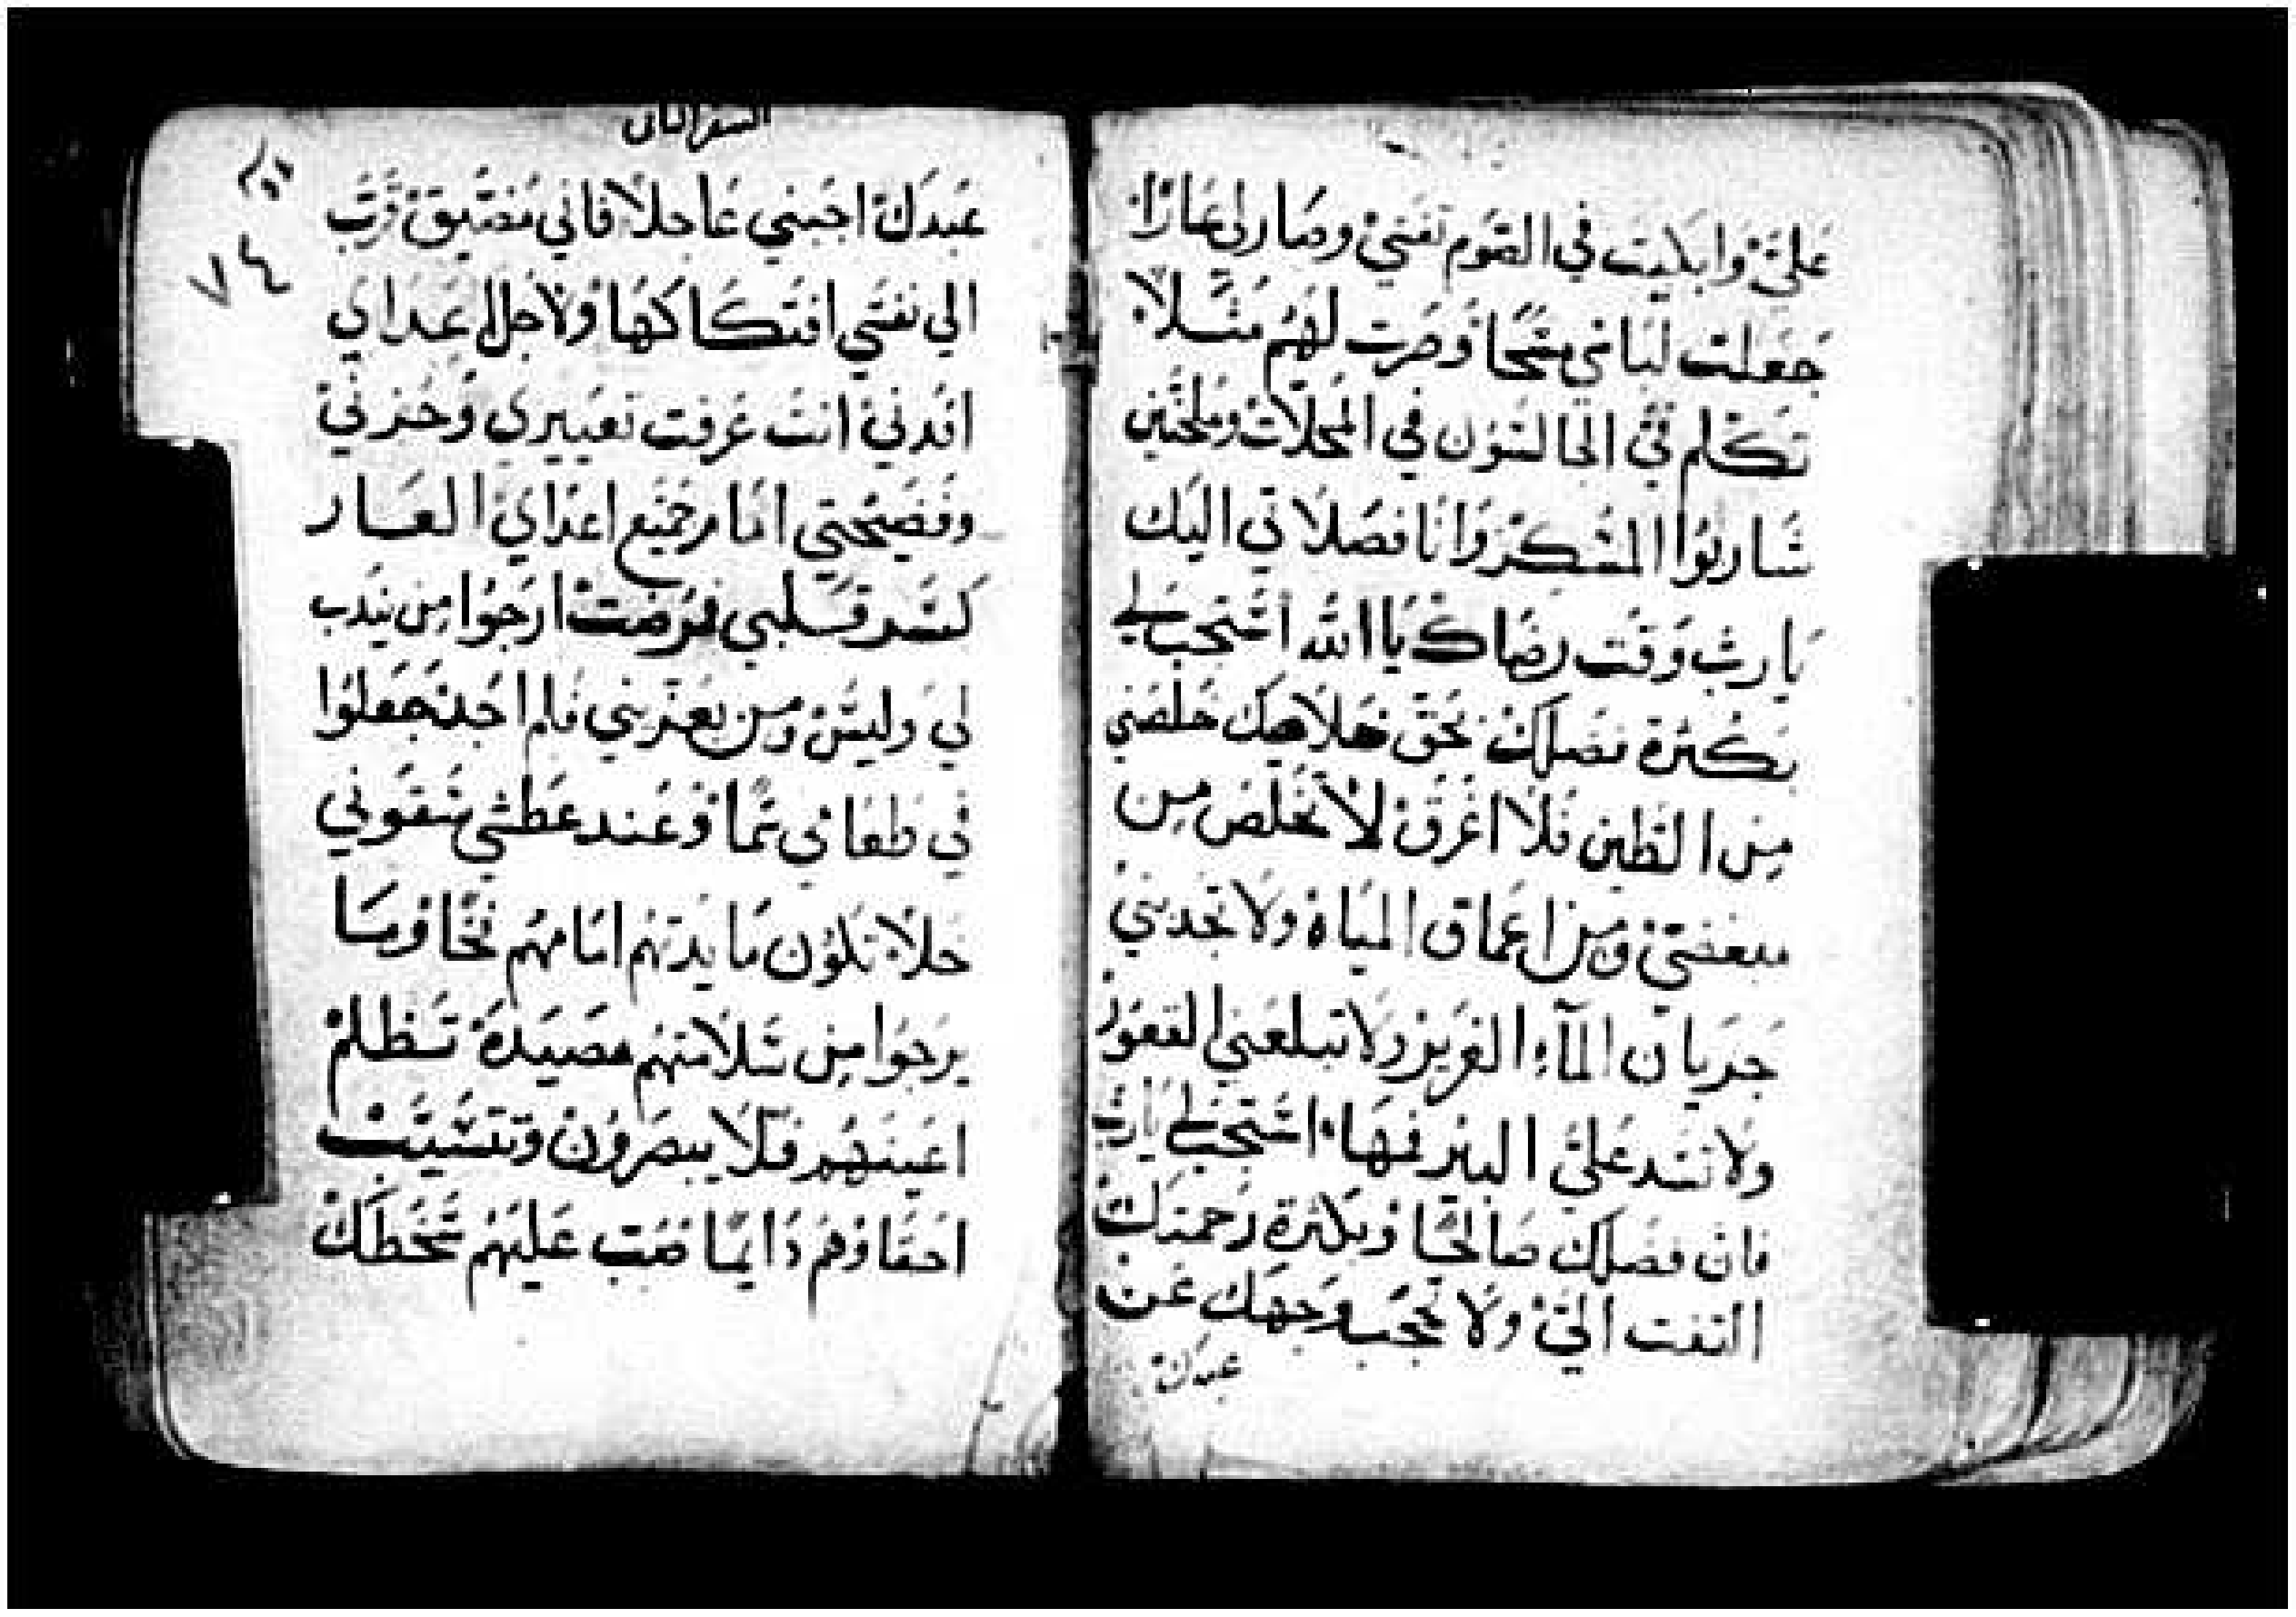 عليَّ وابكيت في الصوم نفسي وصار لي عارًا
جعلت لباسي مسحًا وصرت لهم مثلًا
تكلم فيَّ الجالسون في المحلات وملحنين
شاربوا المسكر وانا فصلاتي اليك
يا رب وقت رضاك يا الله استجب لي
بكثرة فضلك بحق خلاصك خلصني
من الطين فلا اغرق لاتخلص من
مبغضيَّ ومن اعماق المياه ولا تجذبني
جريان المآء الغزير ولا تبلعني القعور
ولا تسد عليَّ البير فمها استجب لي يا رب
فان فضلك صالحًا وبكثرة رحمتك
التفت اليَّ ولا تحجب وجهك عن
عبدك
السفر الثاني
عبدك اجبني عاجلًا فاني مضيق قرّب
الي نفسي افتكاكها ولاجل اعداي
افدني انت عرفت تعييري وخزني
وفضيحتي امامر جميع اعداي العار
كسر قلبي فمرضت ارجوا من يندب
لي وليس ومن يعزيني فلم اجد جعلوا
في طعامي سمًا وعند عطشي سقوني
خلًا تكون مايدتهم امامهم فخًا وما
يرجوا من سلامتهم مصيدة تظلم
اعينهم فلا يبصرون وتتشيب
احقاوهم دايمًا صب عليهم سخطك
٧٤